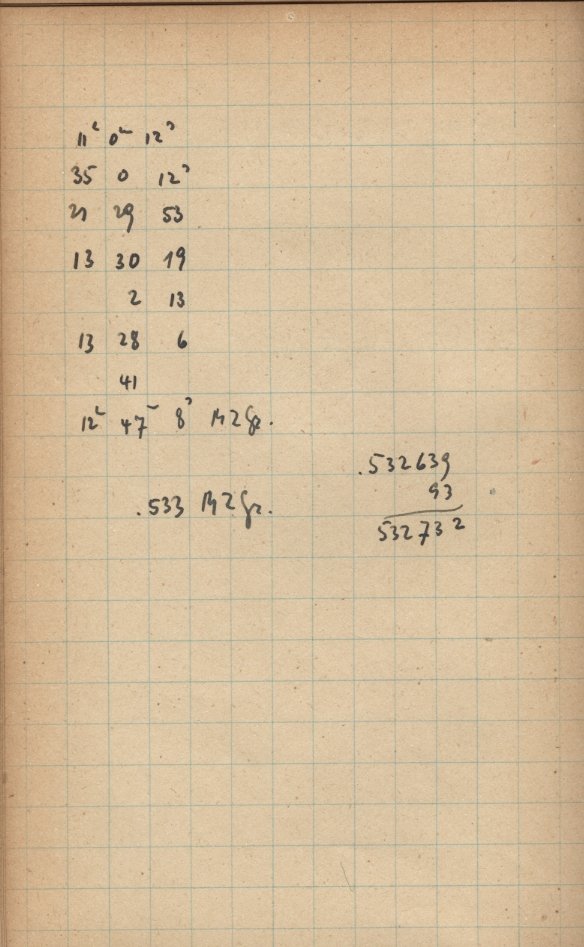 11ʰ 0ᵐ 12ˢ
35 0 12ˢ
21 29 53
13 30 19
2 13
13 28 6
41
12ʰ 47ᵐ 8ˢ MZGr.
.533 MZGr.
.532639
93
532732